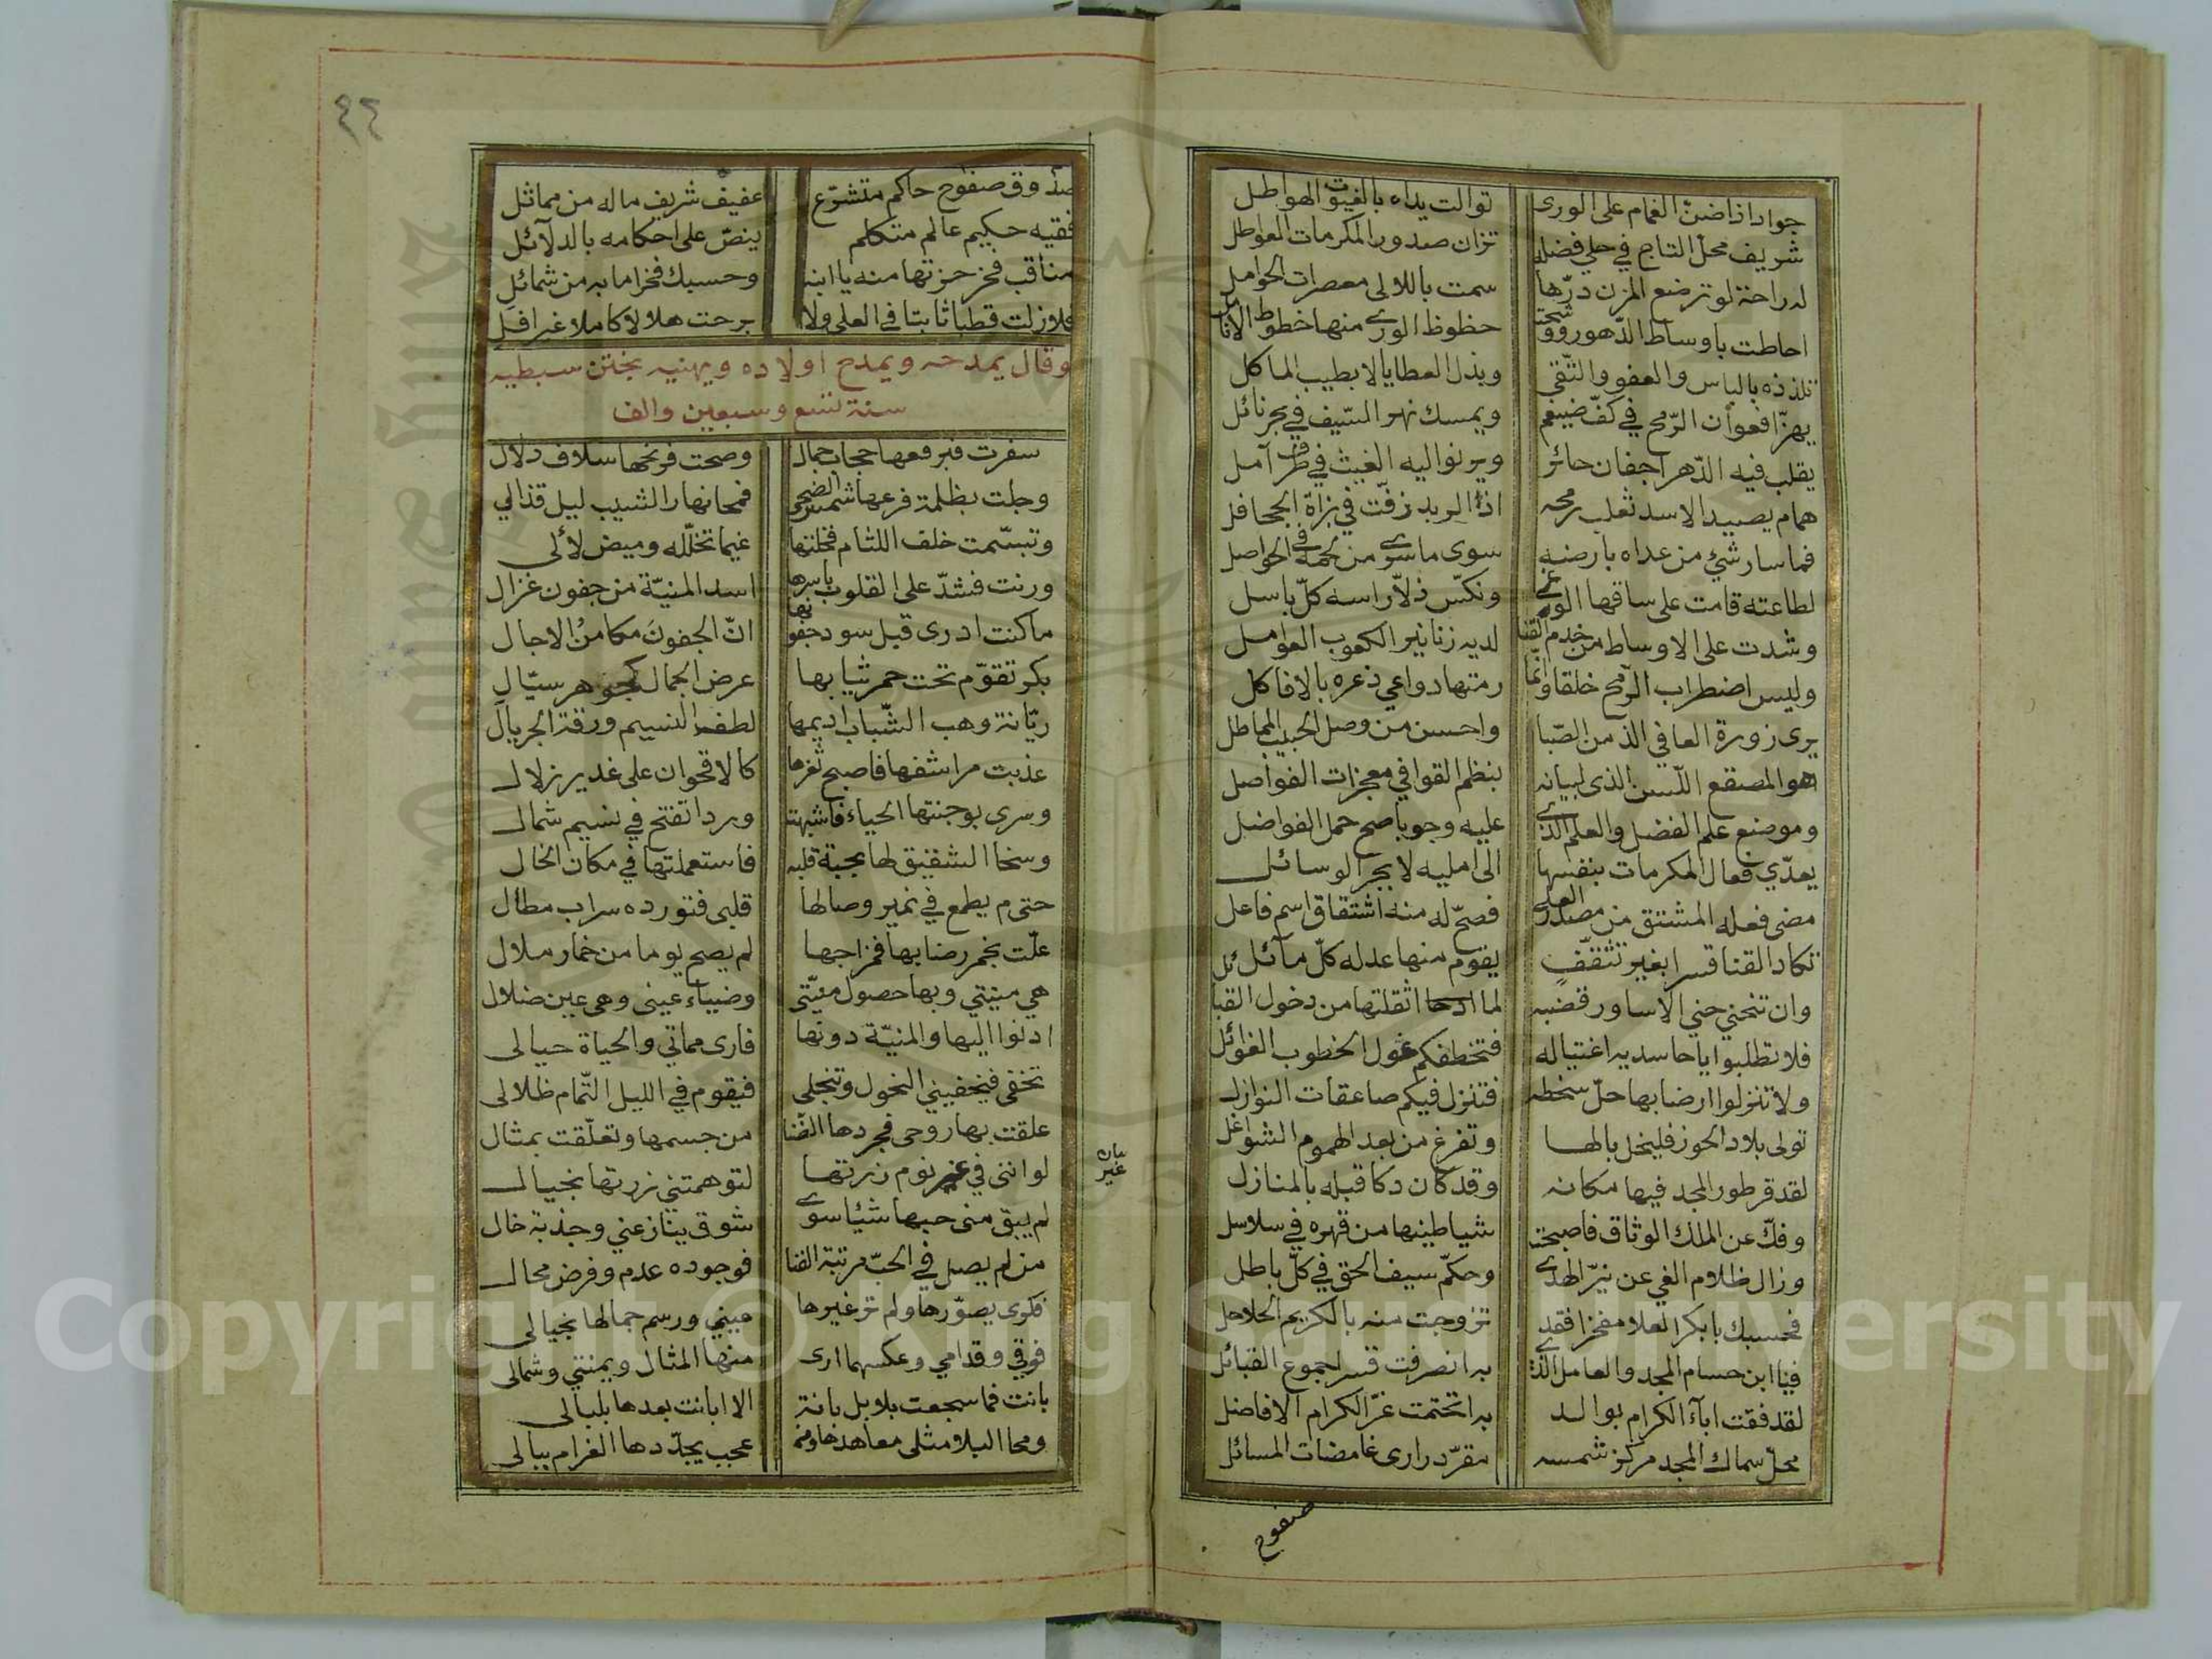 جواد اذا ضنّ الغمام على الورى توالت يداه بالغيوث الهواطل
شريف محلّ التاج في حلي فضله تزان صدور المكرمات العواطل
له راحة لو ترضع المزن درّها سمت باللالى معصرات الحوامل
احاطت باوساط الدّهور ووشّحت حظوظ الورى منها خطوط الانامل
تلذذه بالباس والعفو والتّقى وبذل العطايا لا بطيب الماكل
يهزّ افعوان الرّمح في كفّ ضيغم ويمسك نهر السّيف في بحر نائل
يقلب فيه الدّهر اجفان حائر ويرنو اليه الغيث في طرف آمل
همام يصيد الاسد ثعلب رمحه اذا الربد زفّت في بزاة الجحافل
فما سار شيئ من عداه بارضه سوى ما سرى من لحمه في الحواصل
لطاعته قامت على ساقها الوغى ونكّس ذلاّ راسه كلّ باسل
وشدت على الاوساط من خدم القنا لديه زنانير الكعوب العوامل
وليس اضطراب الرّمح خلقا وانّما رمتها دواعي ذعره بالافاكل
يرى زورة العافي الذ من الصّبا واحسن من وصل الحبيب المماطل
هو المصقع اللّسن الذى لبيانه بنظم القوافي معجزات الفواصل
وموضع علم الفضل والعلم الذى عليه وجوبا صح حمل الفواضل
يعدّي فعال المكرمات بنفسها الى امليه لا بجر الوسائل
مضى فعله المشتق من مصدر العلى فصحّ له منه اشتقاق اسم فاعل
تكاد القنا قسرا بغير تثقّفٍ يقوّم منها عدله كلّ مآئل
وان تنحني حني الاساور قضبه لما اثقلتها من دخول القبائل
فلا تطلبوا يا حاسديه اغتياله فتخطفكم غول الخطوب الغوائل
ولا تنزلوا ارضا بها حلّ سخطه فتنزل فيكم صاعقات النوازل
تولى بلاد الحوز فليخل بالها وتفرغ من بعد الهموم الشواغل
لقد قر طور المجد فيها مكانه وقد كان دكا قبله بالمنازل
وفكّ عن الملك الوثاق فاصبحت شياطينها من قهره في سلاسل
وزال ظلام الغي عن نيّر الهدى وحكّم سيف الحق في كلّ باطل
فحسبك يا بكر العلا مفخرا فقد تزوجت منه بالكريم الحلاحل
فيا ابن حسام المجد والعامل الذى به انصرفت قسرا جموع القبائل
لقد فقت ابآء الكرام بوالد به اختتمت غرّ الكرام الافاضل
محلّ سماك المجد مركز شمسه مقرّ درارى غامضات المسائل
صفوح
٤٢
صدوق صفوح حاكم متشرّع عفيف شريف ماله من مماثل
فقيه حكيم عالم متكلم ينصّ على احكامه بالدلآئل
مناقب فخر حزتها منه يا ابنه وحسبك فخرا مابه من شمائلِ
فلا زلت قطبا ثابتا في العلى ولا برحت هلالا كاملا غير افل
وقال يمدحه ويمدح اولاده ويهنيه بختن سبطيه
سنة تسع وسبعين والف
سفرت فبرقعها حجاب جمال وصحت فرنحها سلاف دلال
وجلت بظلمة فرعها شمس الضحى فمحا نهار الشيب ليل قذالي
وتبسّمت خلف اللثام فخلتها غيما تخلّله وميض لائلى
ورنت فشدّ على القلوب باسرها اسد المنيّة من جفون غزال
ما كنت ادرى قبل سود جفونها انّ الجفونَ مكامنُ الاجال
بكر تقوّم تحت حمر ثيابها عرض الجمال كجوهر سيّالِ
ريّانة وهب الشّباب اديمها لطف النسيم ورقة الجريال
عذبت مراشفها فاصبح ثغرها كالاقحوان على غدير زلال
وسرى بوجنتها الحياء فاشبهت وردا تفتح في نسيم شمال
وسخا الشقيق لها بحبة قلبه فاستعملتها في مكان الخال
حتى م يطمع في نمير وصالها قلبى فتورده سراب مطال
علّت بخمر رضابها فمزاجها لم يصح يوما من خمار ملال
هي منيتي وبها حصول منيّتي وضياء عينى وهى عين ضلال
ادنوا اليها والمنيّة دونها فارى مماتي والحياة حيالى
تخفى فيخفيني النحول وتنجلى فيقوم في الليل التّمام ظلالى
علقت بها روحى فجردها الضّنا من جسمها وتعلّقت بمثال
لوانّنى في غير نوم زرتها لتوهمتني زرتها بخيال
بيان غير
لم يبق منى حبها شيئا سوى شوق ينازعني وجذبة خال
من لم يصل في الحبّ مرتبة الفنا فوجوده عدم وفرض محال
فكرى يصوّرها ولم تر غيرها عينى ورسم جمالها بخيالى
فوقي وقدامي وعكسهما ارى منها المثال ويمنتي وشمالى
بانت فما سجعت بلابل بانة الا ابانت بعدها بلبالى
ومحا البلا مثلى معاهدها ومن عجب يجدّدها الغرام ببالى